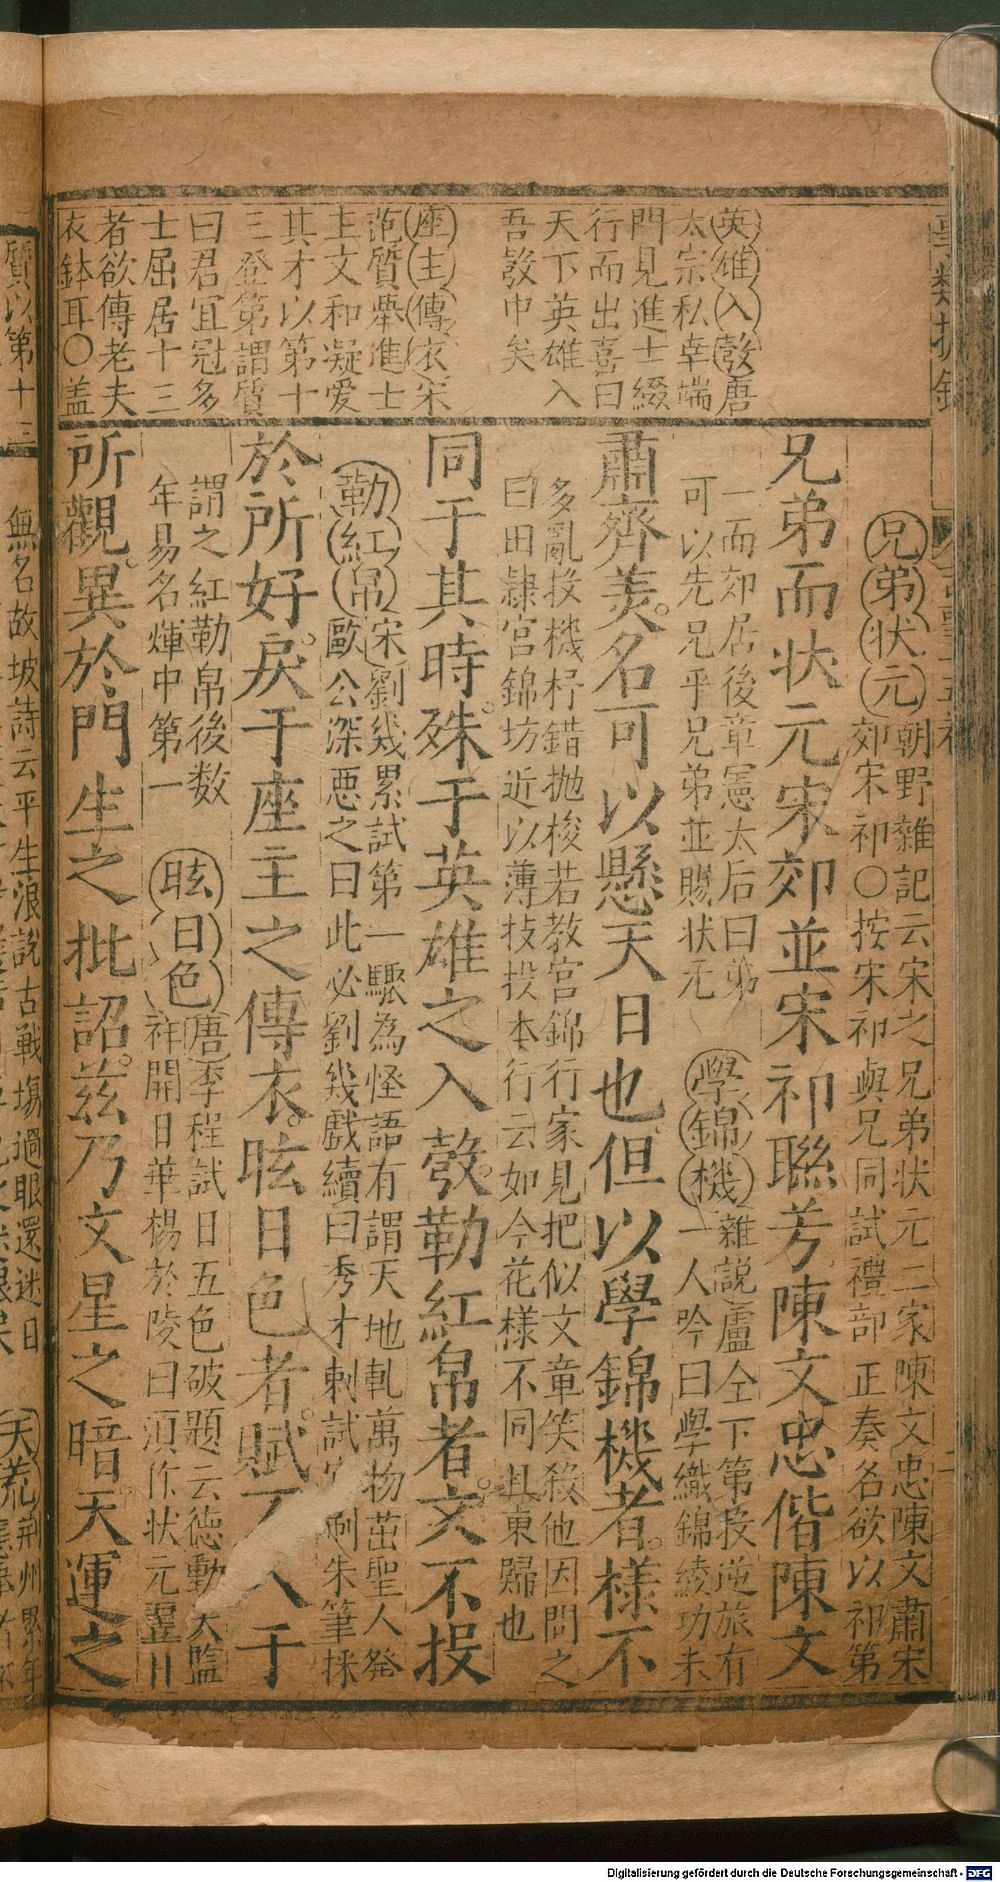 英雄入彀唐
太宗私幸端
門見進士綴
行而出喜曰
天下英雄入
吾彀中矣
座主傳衣宋
范質舉進士
主文和凝愛
其才以第十
三登第謂質
曰君宜冠多
士屈居十三
者欲傳老夫
衣鉢耳〇盖
兄弟状元朝野雜記云宋之兄弟状元二家陳文忠陳文肅宋
郊宋祁〇按宋祁與兄同試禮部正奏名欲以祁第
兄弟而状元宋郊並宋祁聯芳陳文忠偕陳文
一而郊居後章憲太后曰弟
可以先兄乎兄弟並賜状元
學錦機雜説盧仝下第投逆旅有
一人吟曰學織錦綾功未
肅齊美名可以懸天日也但以學錦機者樣不
多亂投機杼錯抛梭若教宫錦行家見把似文章笑殺他因問之
曰田隷宫錦坊近以薄技投本行云如今花樣不同且東歸也
同于其時殊于英雄之入彀勒紅帛者文不投
勒紅帛宋劉幾累試第一驟為怪語有謂天地軋萬物茁聖人発
歐公深惡之曰此必劉幾戯續曰秀才剌試 刷朱筆抹
於所好戾于座主之傳衣眩日色者賦 入于
謂之紅勒帛後数
年易名煇中第一
眩日色唐季程試日五色破題云德動天監
祥開日華楊於陵曰須作状元翌日
所觀異於門生之批詔茲乃文星之暗天運之
質以第十三
無名故坡詩云平生浪說古戰塲過眼還迷日
天荒荆州累年
Digitalisierung gefördert durch die Deutsche Forschungsgemeinschaft - DFG